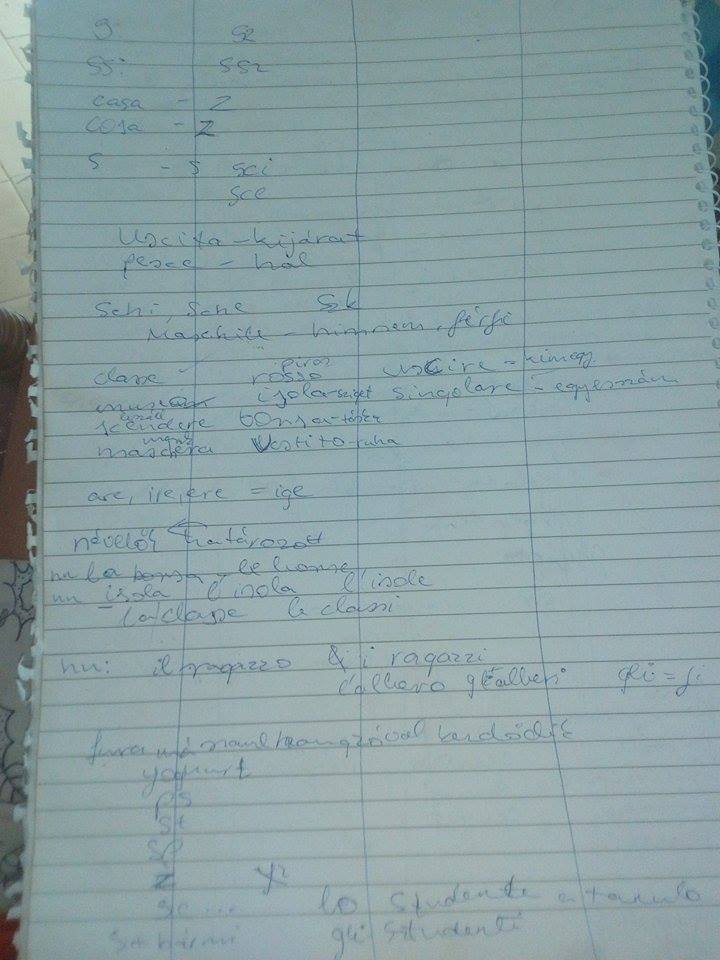 S sz
SS: SSZ
casa - Z
cosa - Z
S - S sci
sce
Uscita - kijárat
pesce - hal
Schi, sche Szk
Maschile - hímnem, férfi
piros
classe - rosso uscire - kimegy
isola-sziget singolare - egyesszám
scendere borsa-táska
maschera Vestito-ruha
are, ire, ere = ige
névelők határozott
nn la borsa - le borse
nn isola l'isola l'isole
la classe le classi
hn: il ragazzo i ragazzi
l'albero gli alberi gli = ji
fura kezdődik
yogurt
ps
st
sp
z
sc... lo studente a tanuló
s+ bármi gli studenti